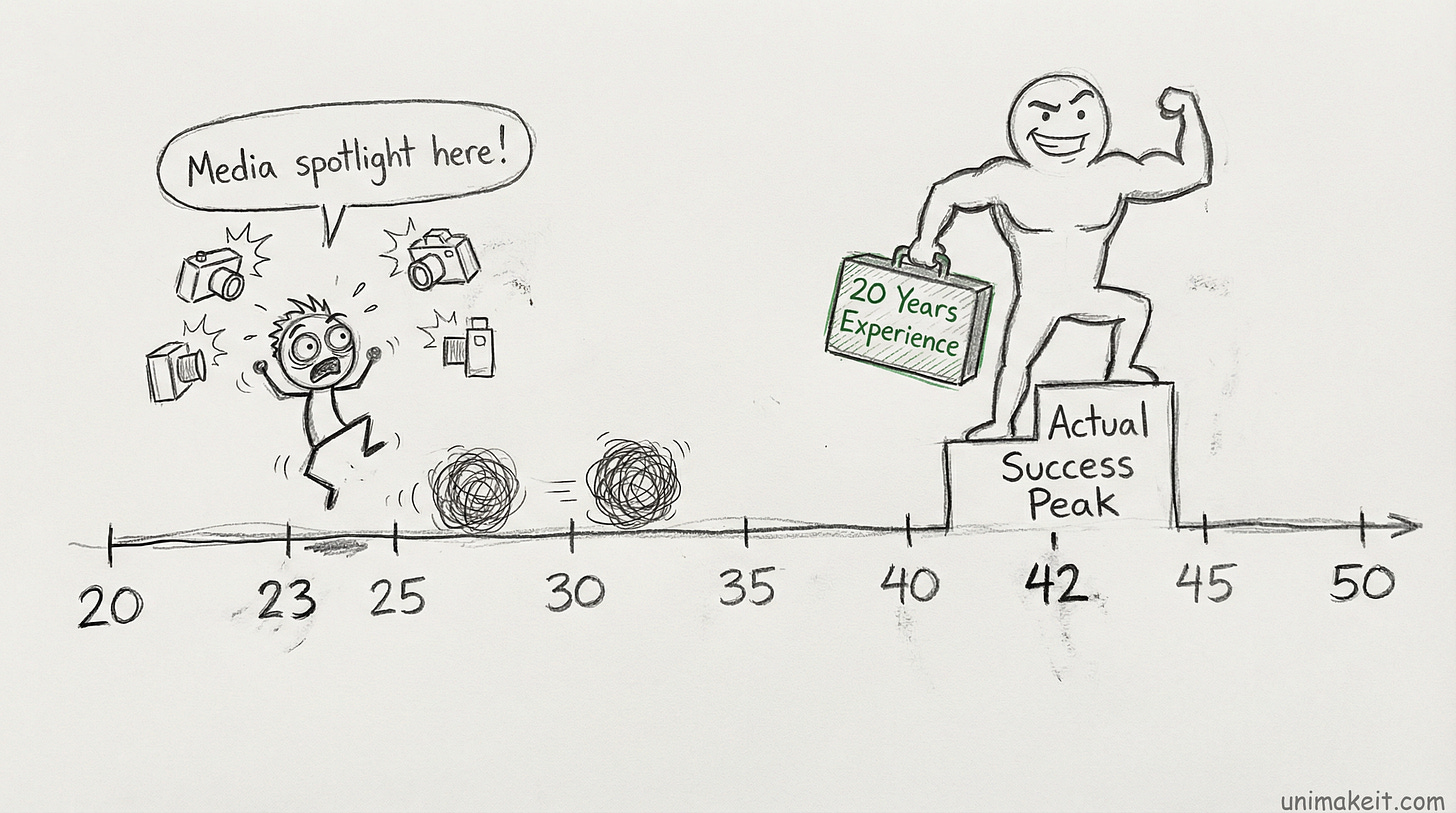 Media spotlight here!
20 Years
Experience
Actual
Success
Peak
20 23 25 30 35 40 42 45 50
unimakeit.com